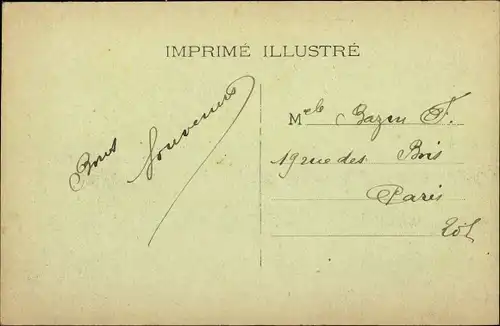 IMPRIMÉ ILLUSTRÉ
Bons
Souvenirs
Melle Bazen F.
19 rue des Bois
Paris